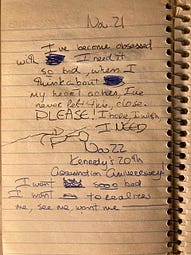 Nov. 21
I've become obsessed
with I need it
so bad, when I
think about
my heart aches, I've
never felt this, close.
PLEASE! I hope, I wish
I NEED
Nov 22
Kennedy's 20th
Assassination Anniversary
I want sooo bad
I want to
me, see me, want me